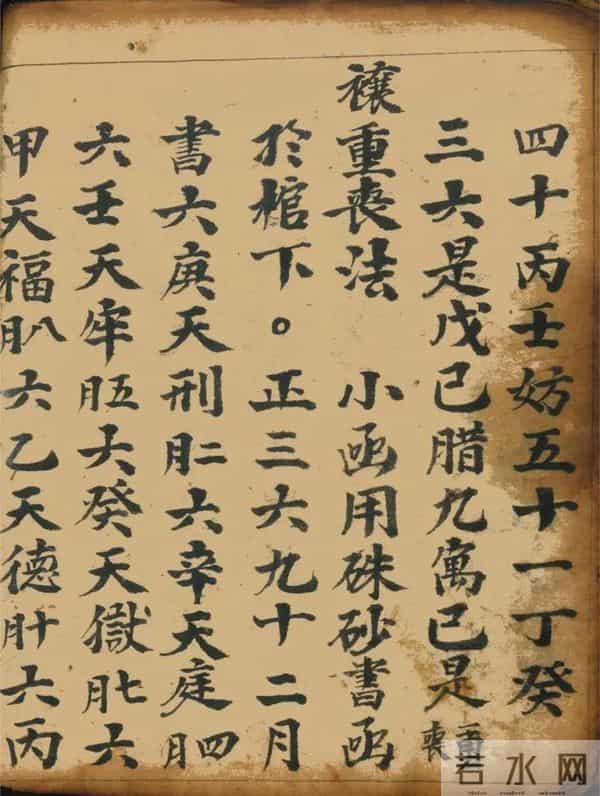 四十丙壬妨五十一丁癸
三六是戊己腊九寓己是重喪
禳重喪法 小函用硃砂書函
於棺下。正三六九十二月
書六庚天刑二月六辛天庭四月
六壬天牢五月六癸天獄七月六
甲天福八月六乙天德十月六丙
若水网